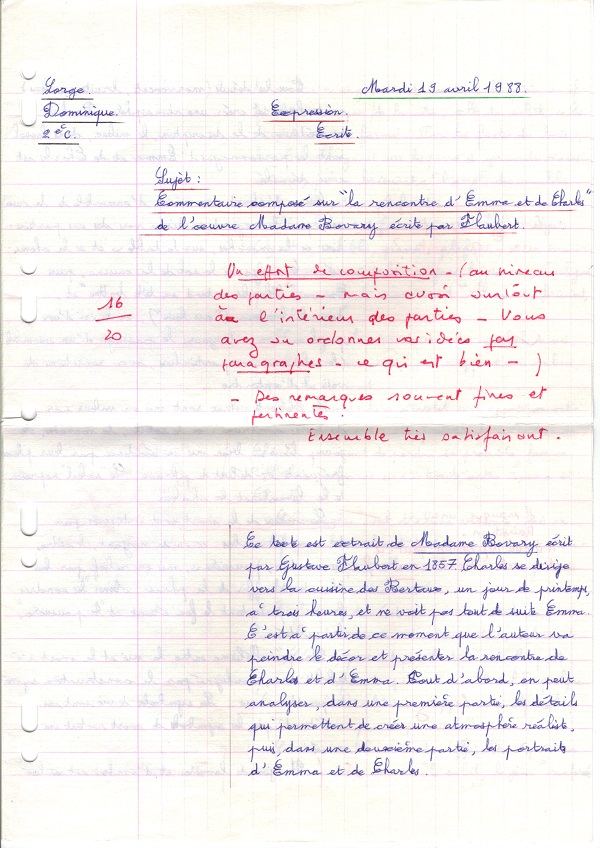 Lorge. Mardi 19 avril 1988.
Dominique. Expression
2e C. Ecrite.
Sujet :
Commentaire composé sur "la rencontre d'Emma et de Charles"
de l'œuvre Madame Bovary écrite par Flaubert.
Un effort de composition - (au niveau
des parties - mais aussi surtout
16/20
à l'intérieur des parties - Vous
avez su ordonner vos idées par
paragraphes - ce qui est bien - )
- Des remarques souvent fines et
pertinentes.
Ensemble très satisfaisant.
Ce texte est extrait de Madame Bovary écrit
par Gustave Flaubert en 1857. Charles se dirige
vers la cuisine des Bertaux, un jour de printemps,
à trois heures, et ne voit pas tout de suite Emma.
C'est à partir de ce moment que l'auteur va
peindre le décor et présenter la rencontre de
Charles et d'Emma. Tout d'abord, on peut
analyser, dans une première partie, les détails
qui permettent de créer une atmosphère réaliste,
puis, dans une deuxième partie, les portraits
d'Emma et de Charles.